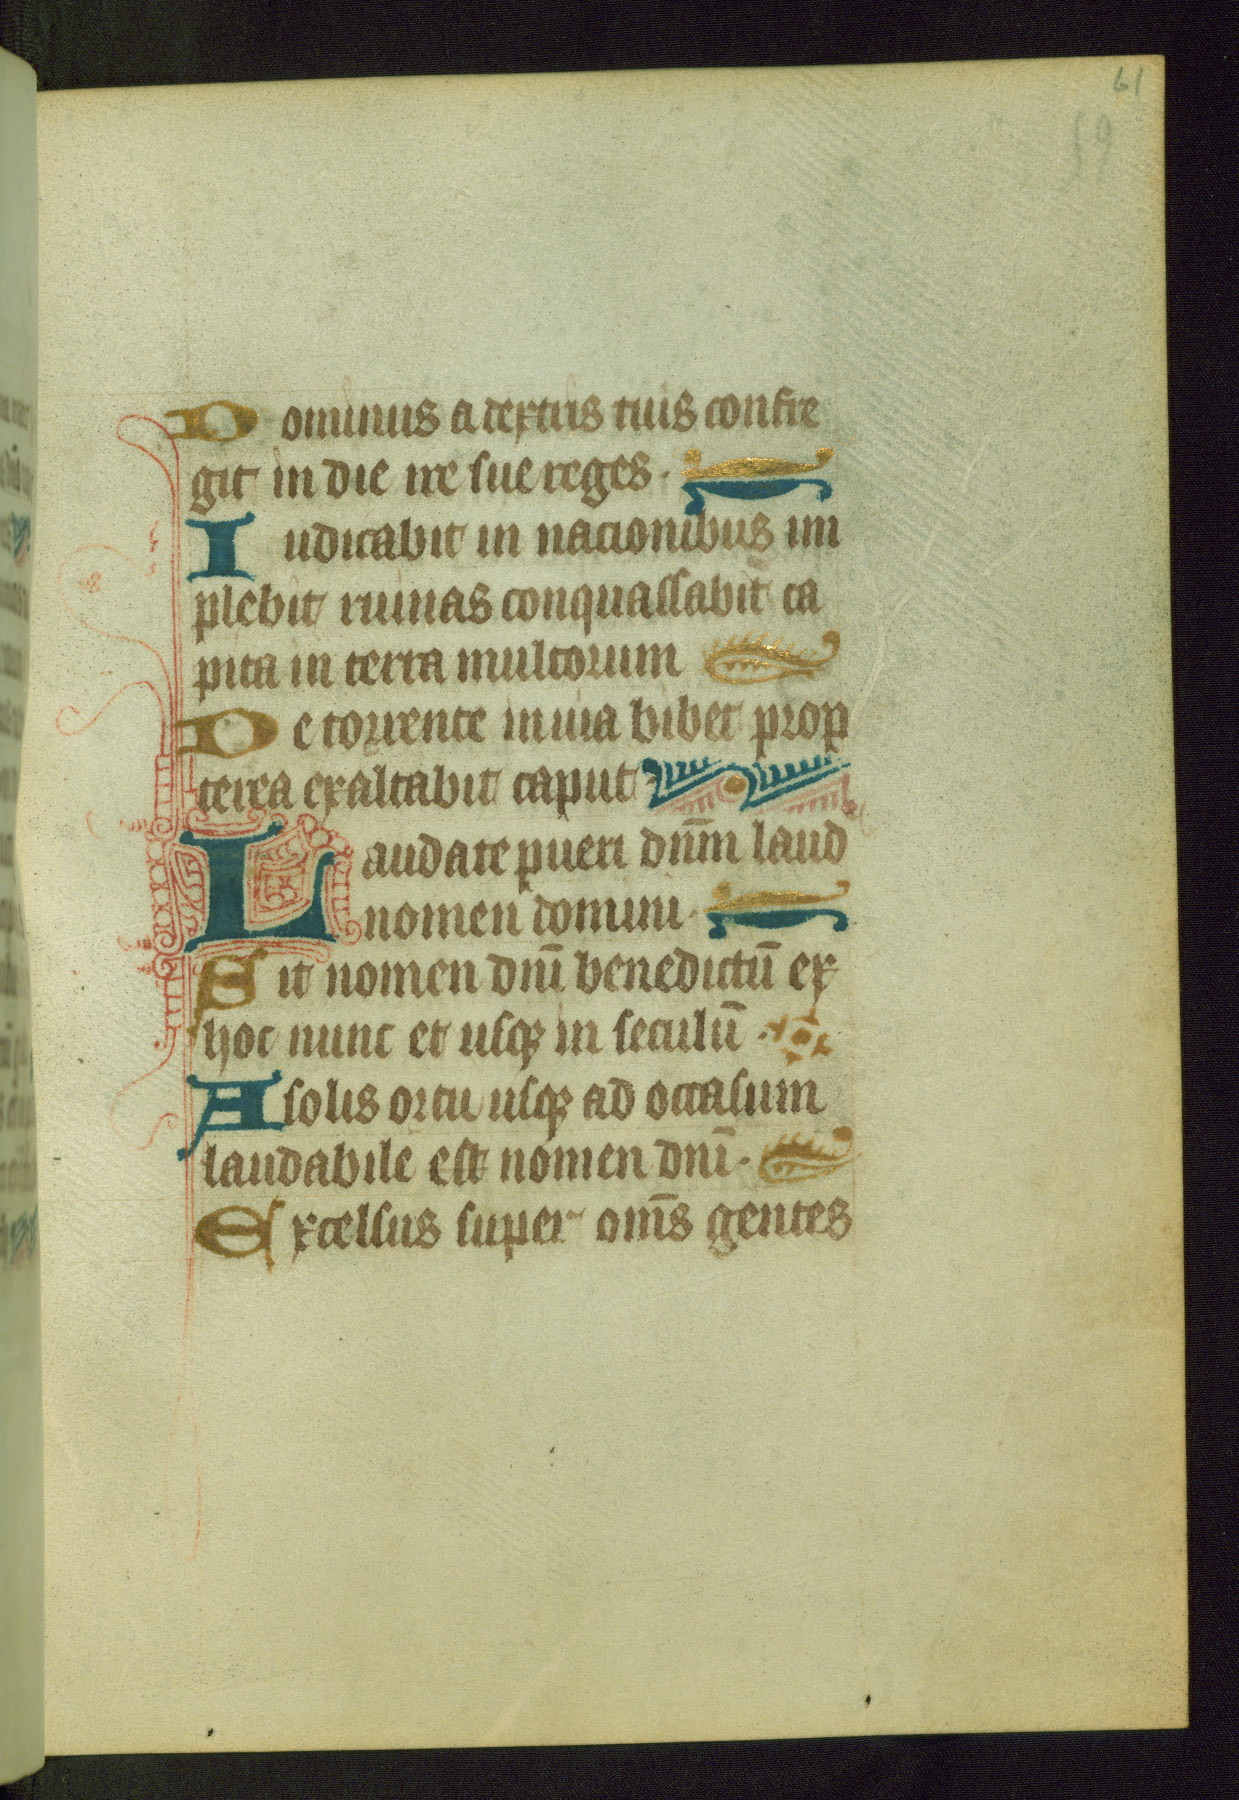 61
59
Dominus a dextris tuis confre
git in die ire sue reges.
Iudicabit in nacionibus im
plebit ruinas conquassabit ca
pita in terra multorum
De torrente in uia bibet prop
terea exaltabit caput
Laudate pueri dn̄m laud
nomen domini.
Sit nomen dnī benedictū ex
hoc nunc et usqꝫ in seculū.
A solis ortu usqꝫ ad occasum
laudabile est nomen dnī.
Excelsus super om̄s gentes